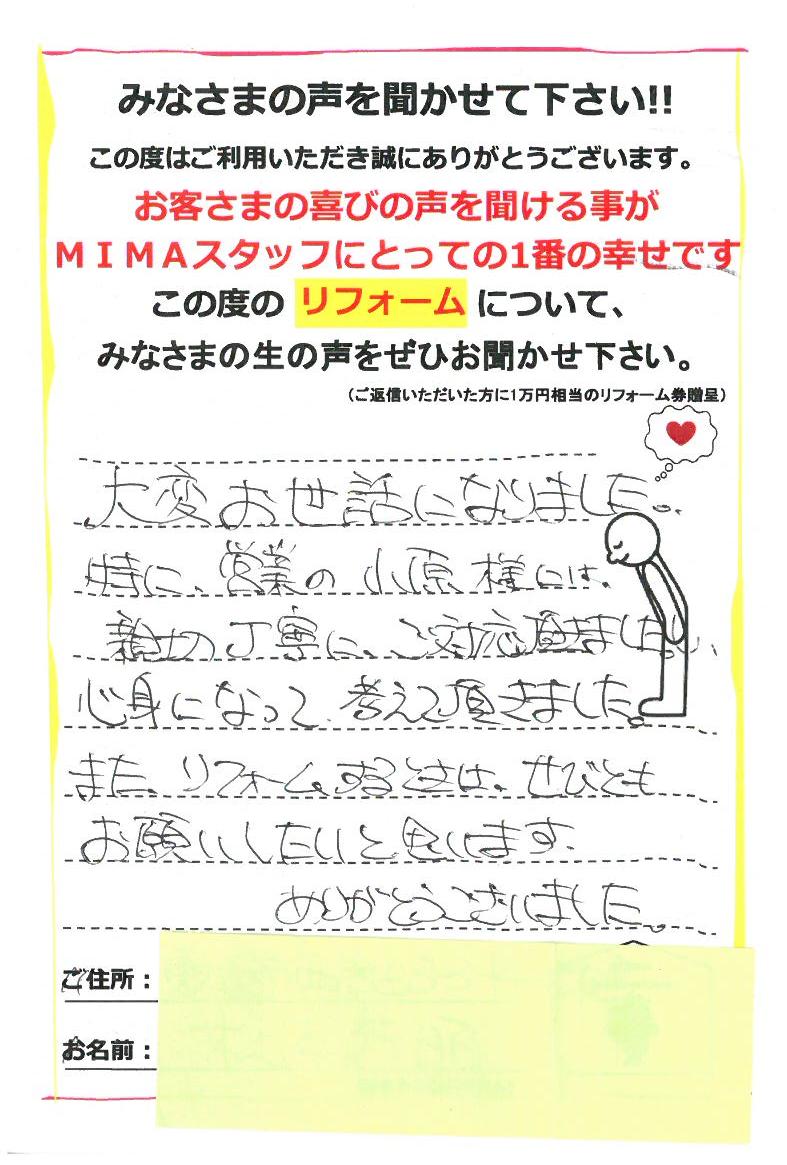 みなさまの声を聞かせて下さい!!
この度はご利用いただき誠にありがとうございます。
お客さまの喜びの声を聞ける事が
ＭＩＭＡスタッフにとっての1番の幸せです
この度の リフォーム について、
みなさまの生の声をぜひお聞かせ下さい。
（ご返信いただいた方に1万円相当のリフォーム券贈呈）
大変お世話になりました。
特に、営業の小原様には、
親切丁寧に、ご対応頂きました。
心身になって、考えて頂きました。
また、リフォームするときは、ぜひとも
お願いしたいと思います。
ありがとうございました。
ご住所：
お名前：